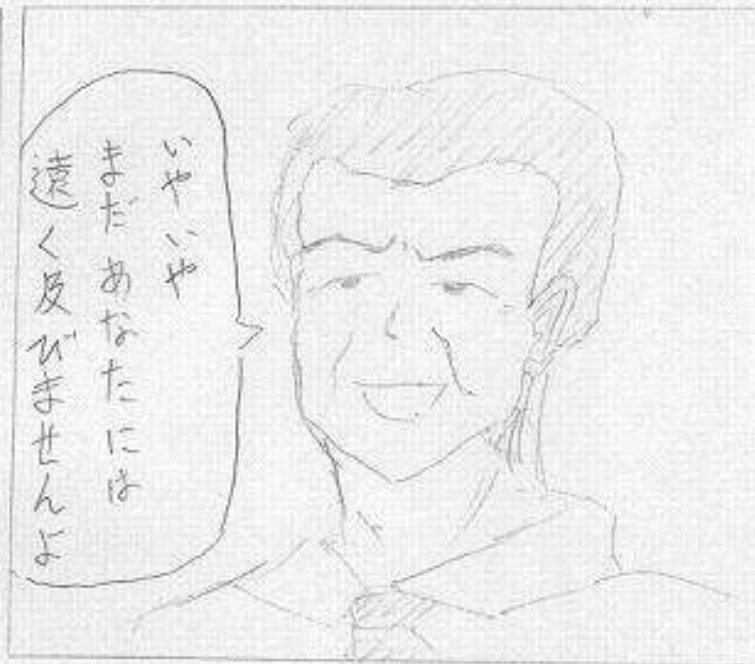 いやいや
まだあなたには
遠く及びませんよ